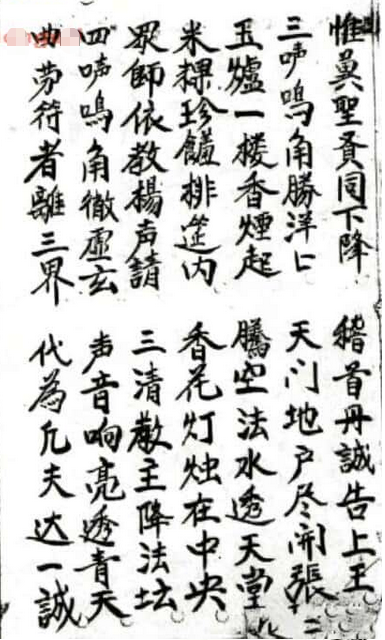 惟冀聖賢同下降 稽首丹誠告上王
三声鳴角勝洋 天门地户尽開張
玉爐一楼香煙起 騰空法水透天堂
米粿珍饈排筵内 香花灯烛在中央
眾師依教揚声請 三清教主降法坛
四声鳴角徹虛玄 声音响亮透青天
曲劳符者離三界 代為凡夫达一誠